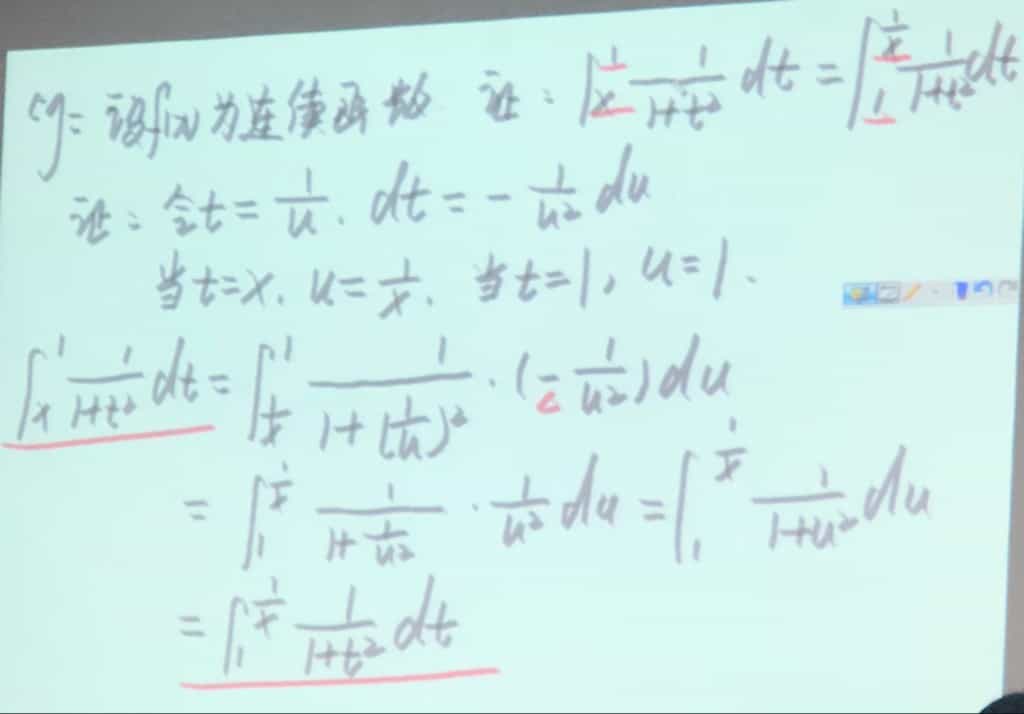 eg: 设f(x)为连续函数 证: ∫_x^1 1/(1+t²) dt = ∫_1^(1/x) 1/(1+t²) dt
证: 令t = 1/u, dt = - 1/u² du
当t=x, u= 1/x, 当t=1, u=1.
∫_x^1 1/(1+t²) dt = ∫_(1/x)^1 1/(1+(1/u)²) · (- 1/u²) du
= ∫_1^(1/x) 1/(1+1/u²) · 1/u² du = ∫_1^(1/x) 1/(1+u²) du
= ∫_1^(1/x) 1/(1+t²) dt